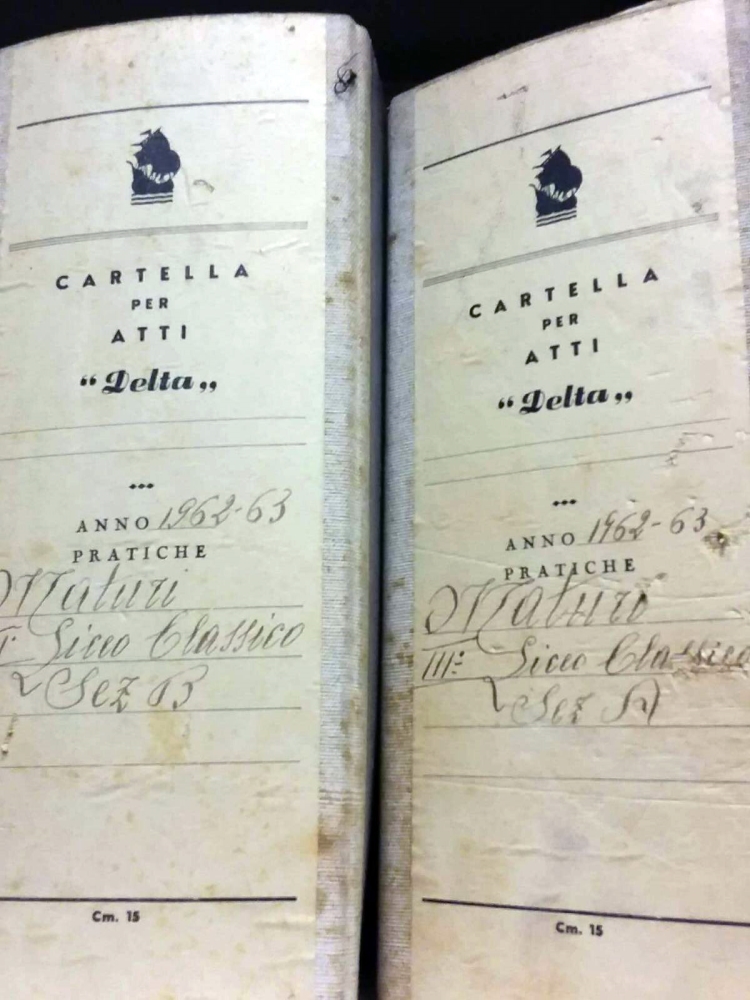 CARTELLA
PER
ATTI
“Delta„
ANNO 1962-63
PRATICHE
Maturi
Liceo Classico
Sez B
Cm. 15
CARTELLA
PER
ATTI
“Delta„
ANNO 1962-63
PRATICHE
Maturi
III: Liceo Classico
Sez A
Cm. 15